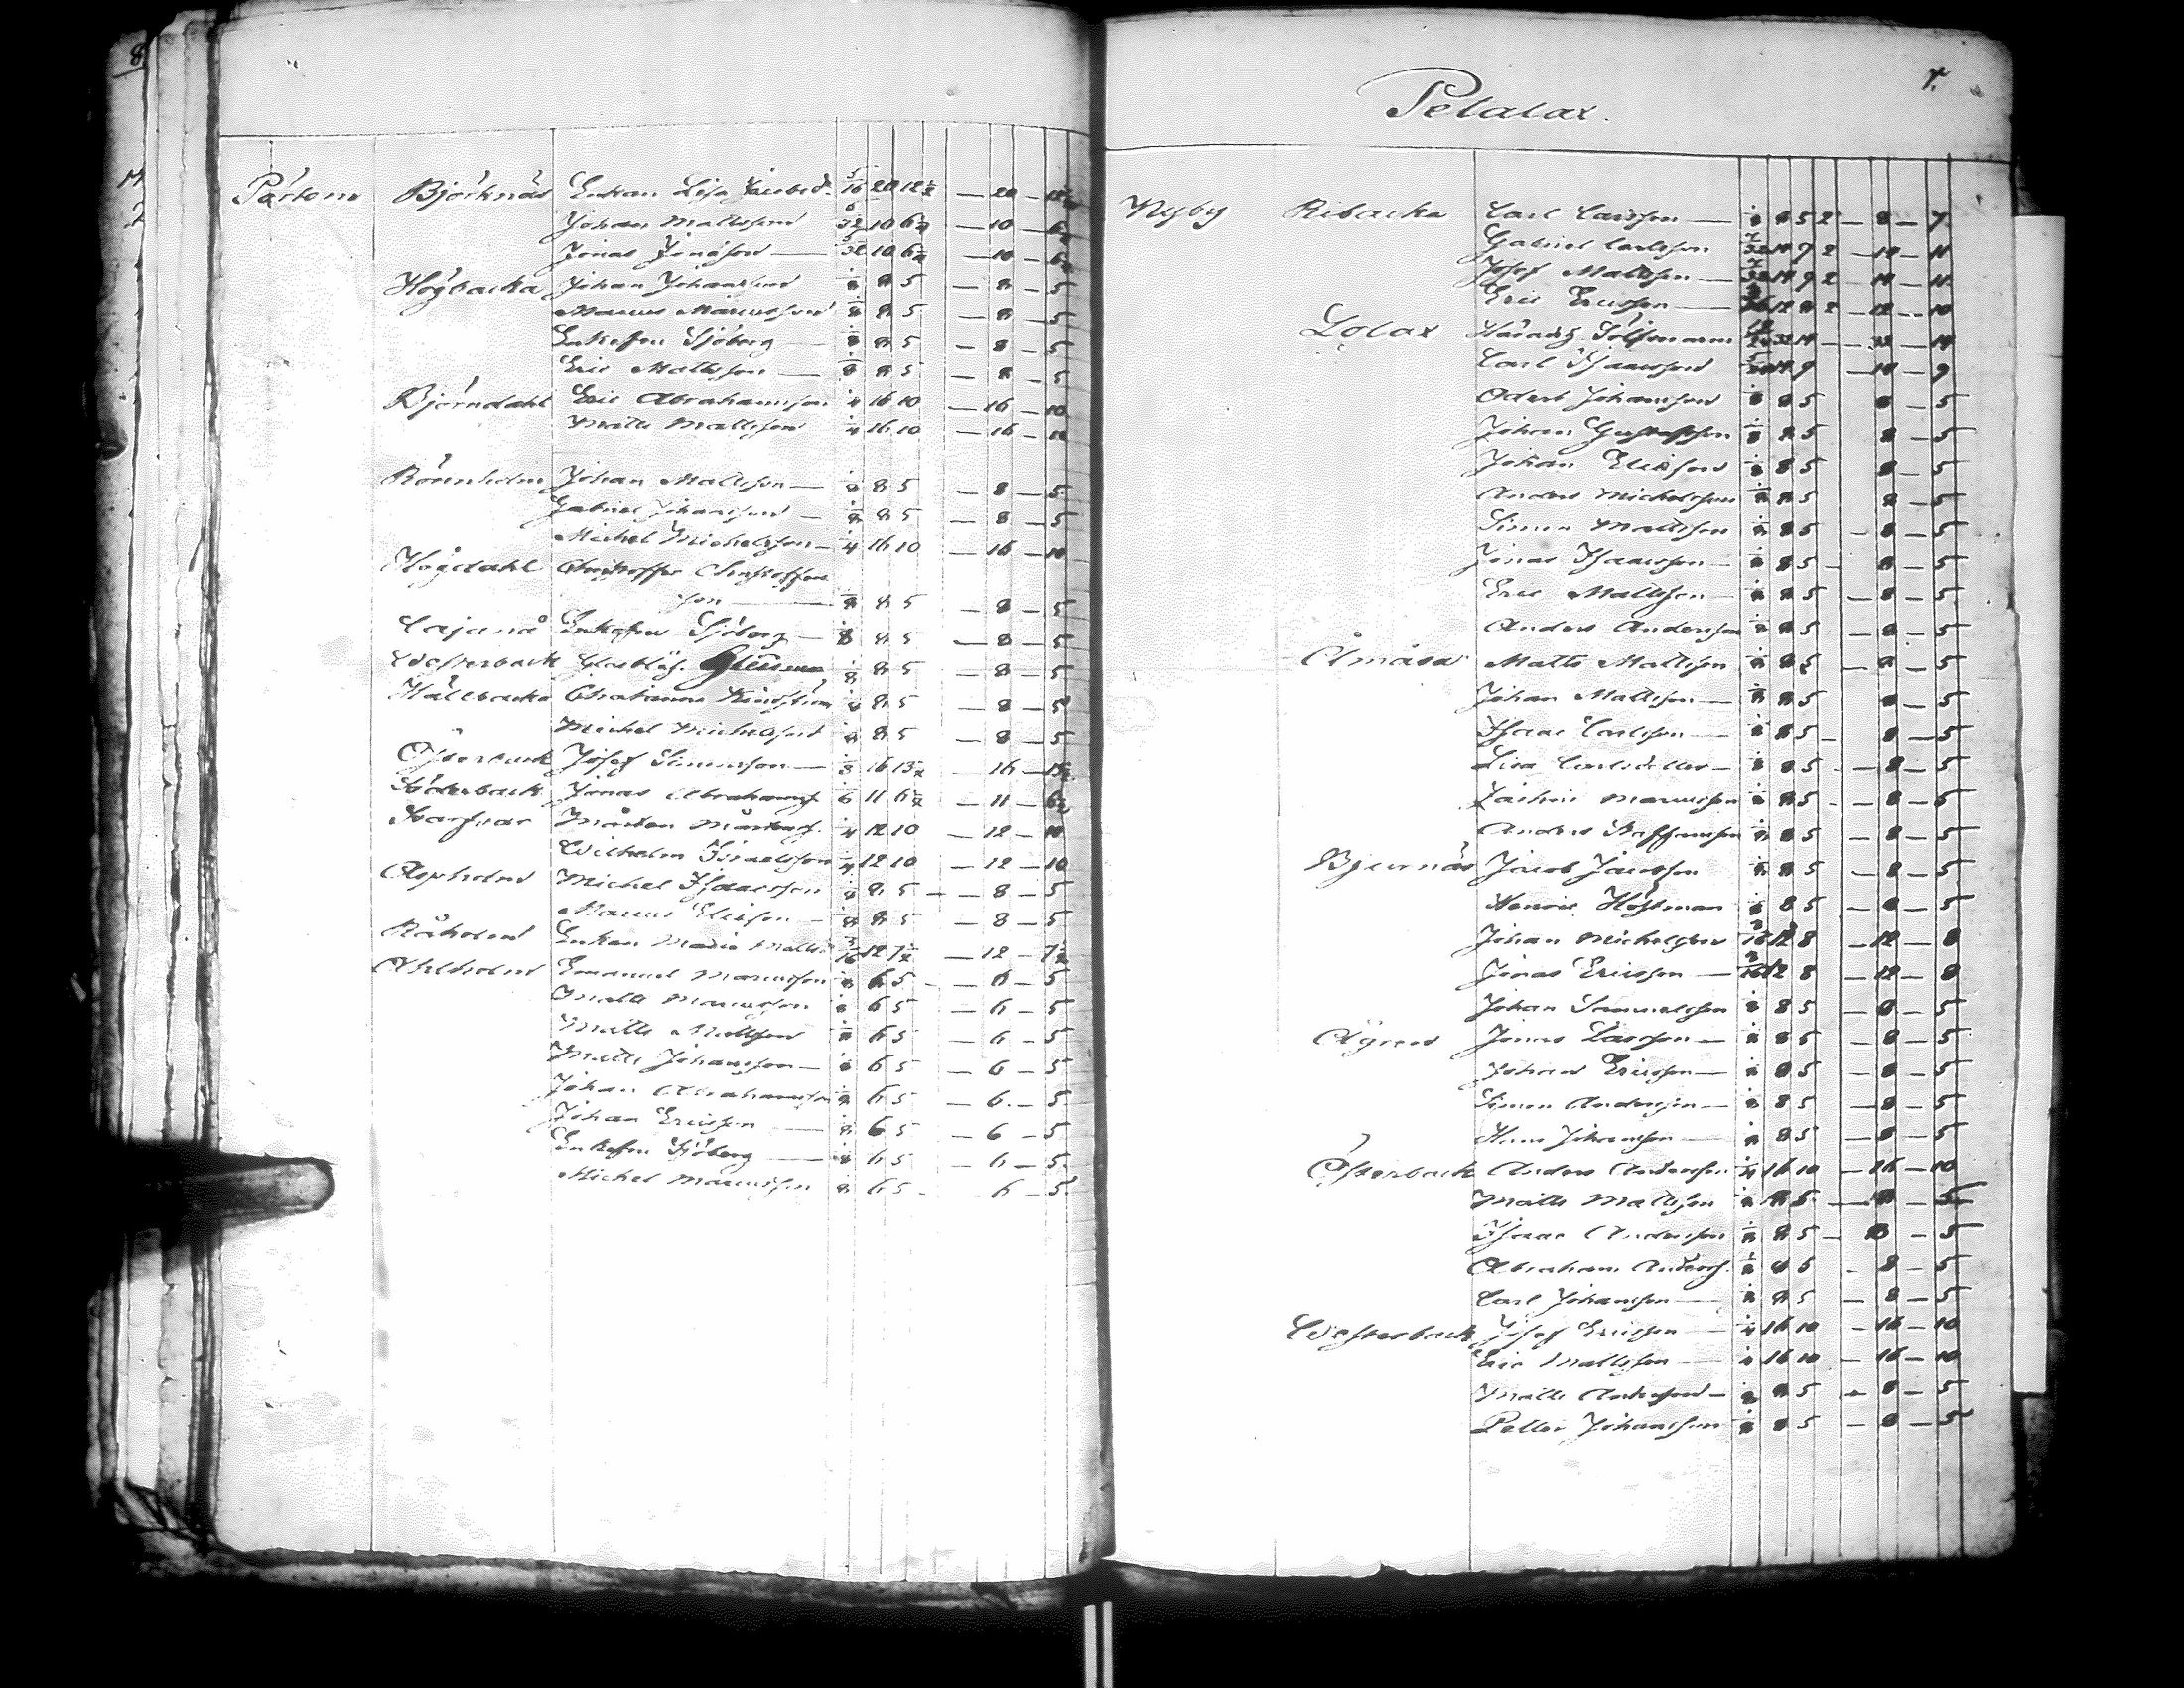 Pörtom Björknäs Enkan Lisa Jacobsd. 5/16 20 12½ — 20 — 12½
Johan Mattsson 5/32 10 6¼ — 10 — 6¼
Jonas Jonasson — 5/32 10 6¼ — 10 — 6¼
Högbacka Johan Johansson 1/8 8 5 — 8 — 5
Marcus Marcusson 1/8 8 5 — 8 — 5
Enkefru Sjöberg — 1/8 8 5 — 8 — 5
Eric Mattsson — 1/8 8 5 — 8 — 5
Björndahl Eric Abrahamsson 1/4 16 10 — 16 — 10
Matts Mattsson 1/4 16 10 — 16 — 10
Rönnholm Johan Mattsson — 1/8 8 5 — 8 — 5
Gabriel Johansson — 1/8 8 5 — 8 — 5
Michel Michelsson — 1/4 16 10 — 16 — 10
Högdahl Christoffer Christoffers
son — 1/8 8 5 — 8 — 5
Cajanå Enkefru Sjöberg — 1/8 8 5 — 8 — 5
Westerback 1/8 8 5 — 8 — 5
Hällbacka 1/8 8 5 — 8 — 5
Michel Michelsson 1/8 8 5 — 8 — 5
Österback Josef Simonsson — 16 13½ — 16 — 13½
Söderback Jonas Abrahamss. 1/6 11 6½ — 11 — 6½
Mårten Mårtenss. 1/4 12 10 — 12 — 10
Wilhelm Israelsson 1/4 12 10 — 12 — 10
Aspholm Michel Isaacsson 1/8 8 5 — 8 — 5
Marcus Eliesson — 1/8 8 5 — 8 — 5
Råholm Enkan Maria Mattsd. 3/16 12 7½ — 12 — 7½
Ahlholm Emanuel Marcusson 1/8 6 5 — 6 — 5
Matts Marcusson 1/8 6 5 — 6 — 5
Matts Mattsson 1/8 6 5 — 6 — 5
Matts Johansson — 1/8 6 5 — 6 — 5
Johan Abrahamsson 1/8 6 5 — 6 — 5
Johan Ericsson — 1/8 6 5 — 6 — 5
Enkefru Sjöberg — 1/8 6 5 — 6 — 5
Michel Marcusson 1/8 6 5 — 6 — 5
Petalax.
Nyby Ribacka Carl Carlsson — 1/8 8 5 2 — 8 — 7
Gabriel Carlsson 14 9 2 — 14 — 11
Josef Mattsson — 14 9 2 — 14 — 11
Eric Ericsson — 12 8 2 — 12 — 10
Lolax
Carl Isaacsson 14 9 — 14 — 9
Johansson 1/8 8 5 8 — 5
Johan Gustafsson 1/8 8 5 8 — 5
Johan Eliesson 1/8 8 5 8 — 5
Anders Michelsson 1/8 8 5 8 — 5
Simon Mattsson 1/8 8 5 — 8 — 5
Jonas Isaacsson — 1/8 8 5 — 8 — 5
Eric Mattsson — 1/8 8 5 — 8 — 5
Anders Andersson 1/8 8 5 — 8 — 5
Åmåsa Matts Mattsson 1/8 8 5 — 8 — 5
Johan Mattsson — 1/8 8 5 8 — 5
Isaac Carlsson — 1/8 8 5 — 8 — 5
Lisa Carlsdotter — 1/8 8 5 — 8 — 5
Marcusson 1/8 8 5 — 8 — 5
Anders Staffansson 1/8 8 5 — 8 — 5
Bjurnäs Jacob Jacobsson 1/8 8 5 — 8 — 5
Henric Höstman 1/8 8 5 — 8 — 5
Johan Michelsson 3/16 12 8 — 12 — 8
Jonas Ericsson — 3/16 12 8 — 12 — 8
Johan Samuelsson 1/8 8 5 — 8 — 5
Ågren Jonas Larsson — 1/8 8 5 — 8 — 5
Johan Ericsson — 1/8 8 5 — 8 — 5
Simon Andersson — 1/8 8 5 — 8 — 5
Hans Johansson — 1/8 8 5 — 8 — 5
Österback Anders Andersson 1/4 16 10 — 16 — 10
Matts Mattsson 1/8 8 5 — 8 — 5
Isaac Andersson 1/8 8 5 — 8 — 5
Abraham Anderss. 1/8 8 5 — 8 — 5
Carl Johansson — 1/8 8 5 — 8 — 5
Westerback Josef Ericsson — 1/4 16 10 — 16 — 10
Eric Mattsson — 1/4 16 10 — 16 — 10
Matts Andersson — 1/8 8 5 — 8 — 5
Petter Johansson 1/8 8 5 — 8 — 5